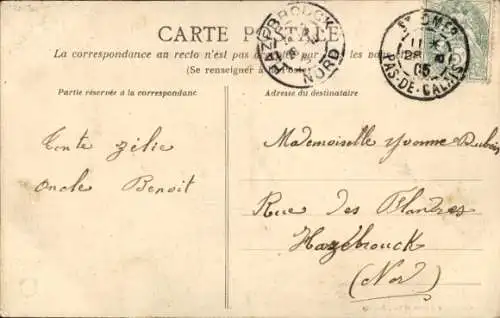 CARTE POSTALE
La correspondance au recto n'est pas par tous les
(Se renseigner à la Poste)
Partie réservée à la correspondance
Adresse du destinataire
HAZEBROUCK
NORD
ST OMER
11
28
05
PAS-DE-CALAIS
Tente Zélie
Oncle Benoit
Mademoiselle Yvonne Dubois
Rue des Flandres
Hazebrouck
(Nor)